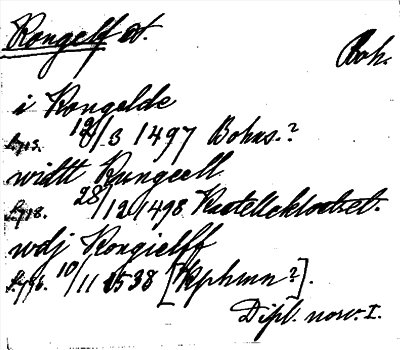 Kongelf st.
Boh.
i Kongelde
12/3 1497 Bohus.?
widtt Kungeell
28/12 1498 Kastelleklostret.
wdj Kongielff
10/11 1538 [Kphmn?].
Dipl. norv. I.